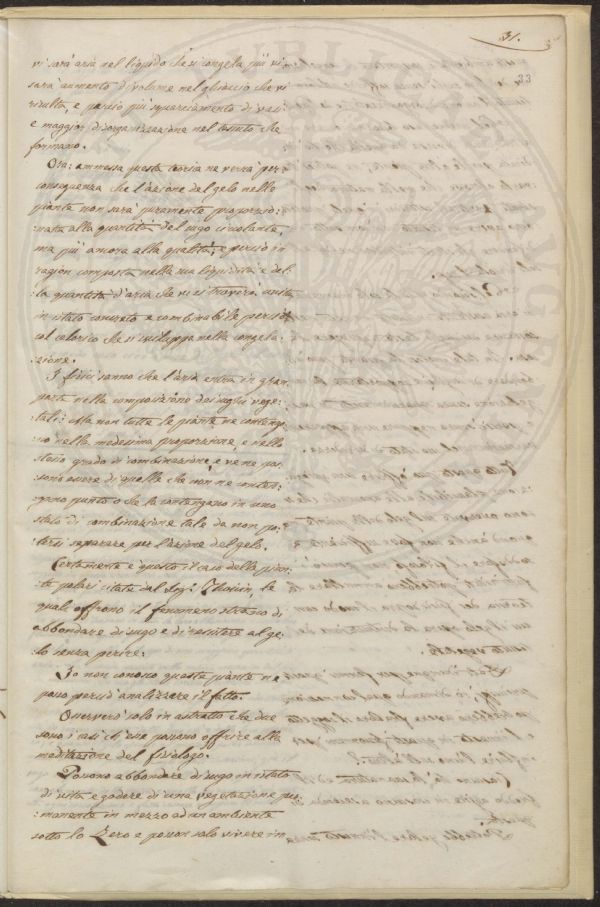 31.
33
vi sarà aria nel liquido che si congela più vi
sarà aumento di volume nel ghiaccio che vi
risulta, e perciò più squarciamento di vasi
e maggior disorganizzazione nel tessuto che
formano.
Ora: ammessa questa teoria ne verrà per
conseguenza che l'azione del gelo nelle
piante non sarà puramente proporzio:
nata alla quantità del sugo circolante,
ma più ancora alla qualità; e perciò in
ragion composta nella sua liquidità e del:
la quantità d'aria che vi si troverà unita
in istato concreto e combinabile perciò
col calorico che si sviluppa nella congela:
zione.
I fisici sanno che l'aria entra in gran
parte nella composizione dei sughi vege:
tali: Ma non tutte le piante ne conteng:
ono nella medesima proporzione, e nello
stesso grado di combinazione, e ve ne pos:
sono essere di quelle che non ne conten:
gono punto o che la contengano in uno
stato di combinazione tale da non po:
tersi separare per l'azione del gelo.
Certamente è questo il caso delle pian:
te polari citate dal Sigr. Thouin, le
quali offrono il fenomeno strano di
abbondare di sugo e di resistere al ge:
lo senza perire.
Io non conosco queste piante ne
posso perciò analizzare il fatto.
Osserverò solo in astratto che due
sono i casi ch'esse possono offrire alla
meditazione del fisiologo.
Possono abbondare di sugo in istato
di vita e godere di una vegetazione per:
manente in mezzo ad un ambiente
sotto lo Zero e posson solo vivere in